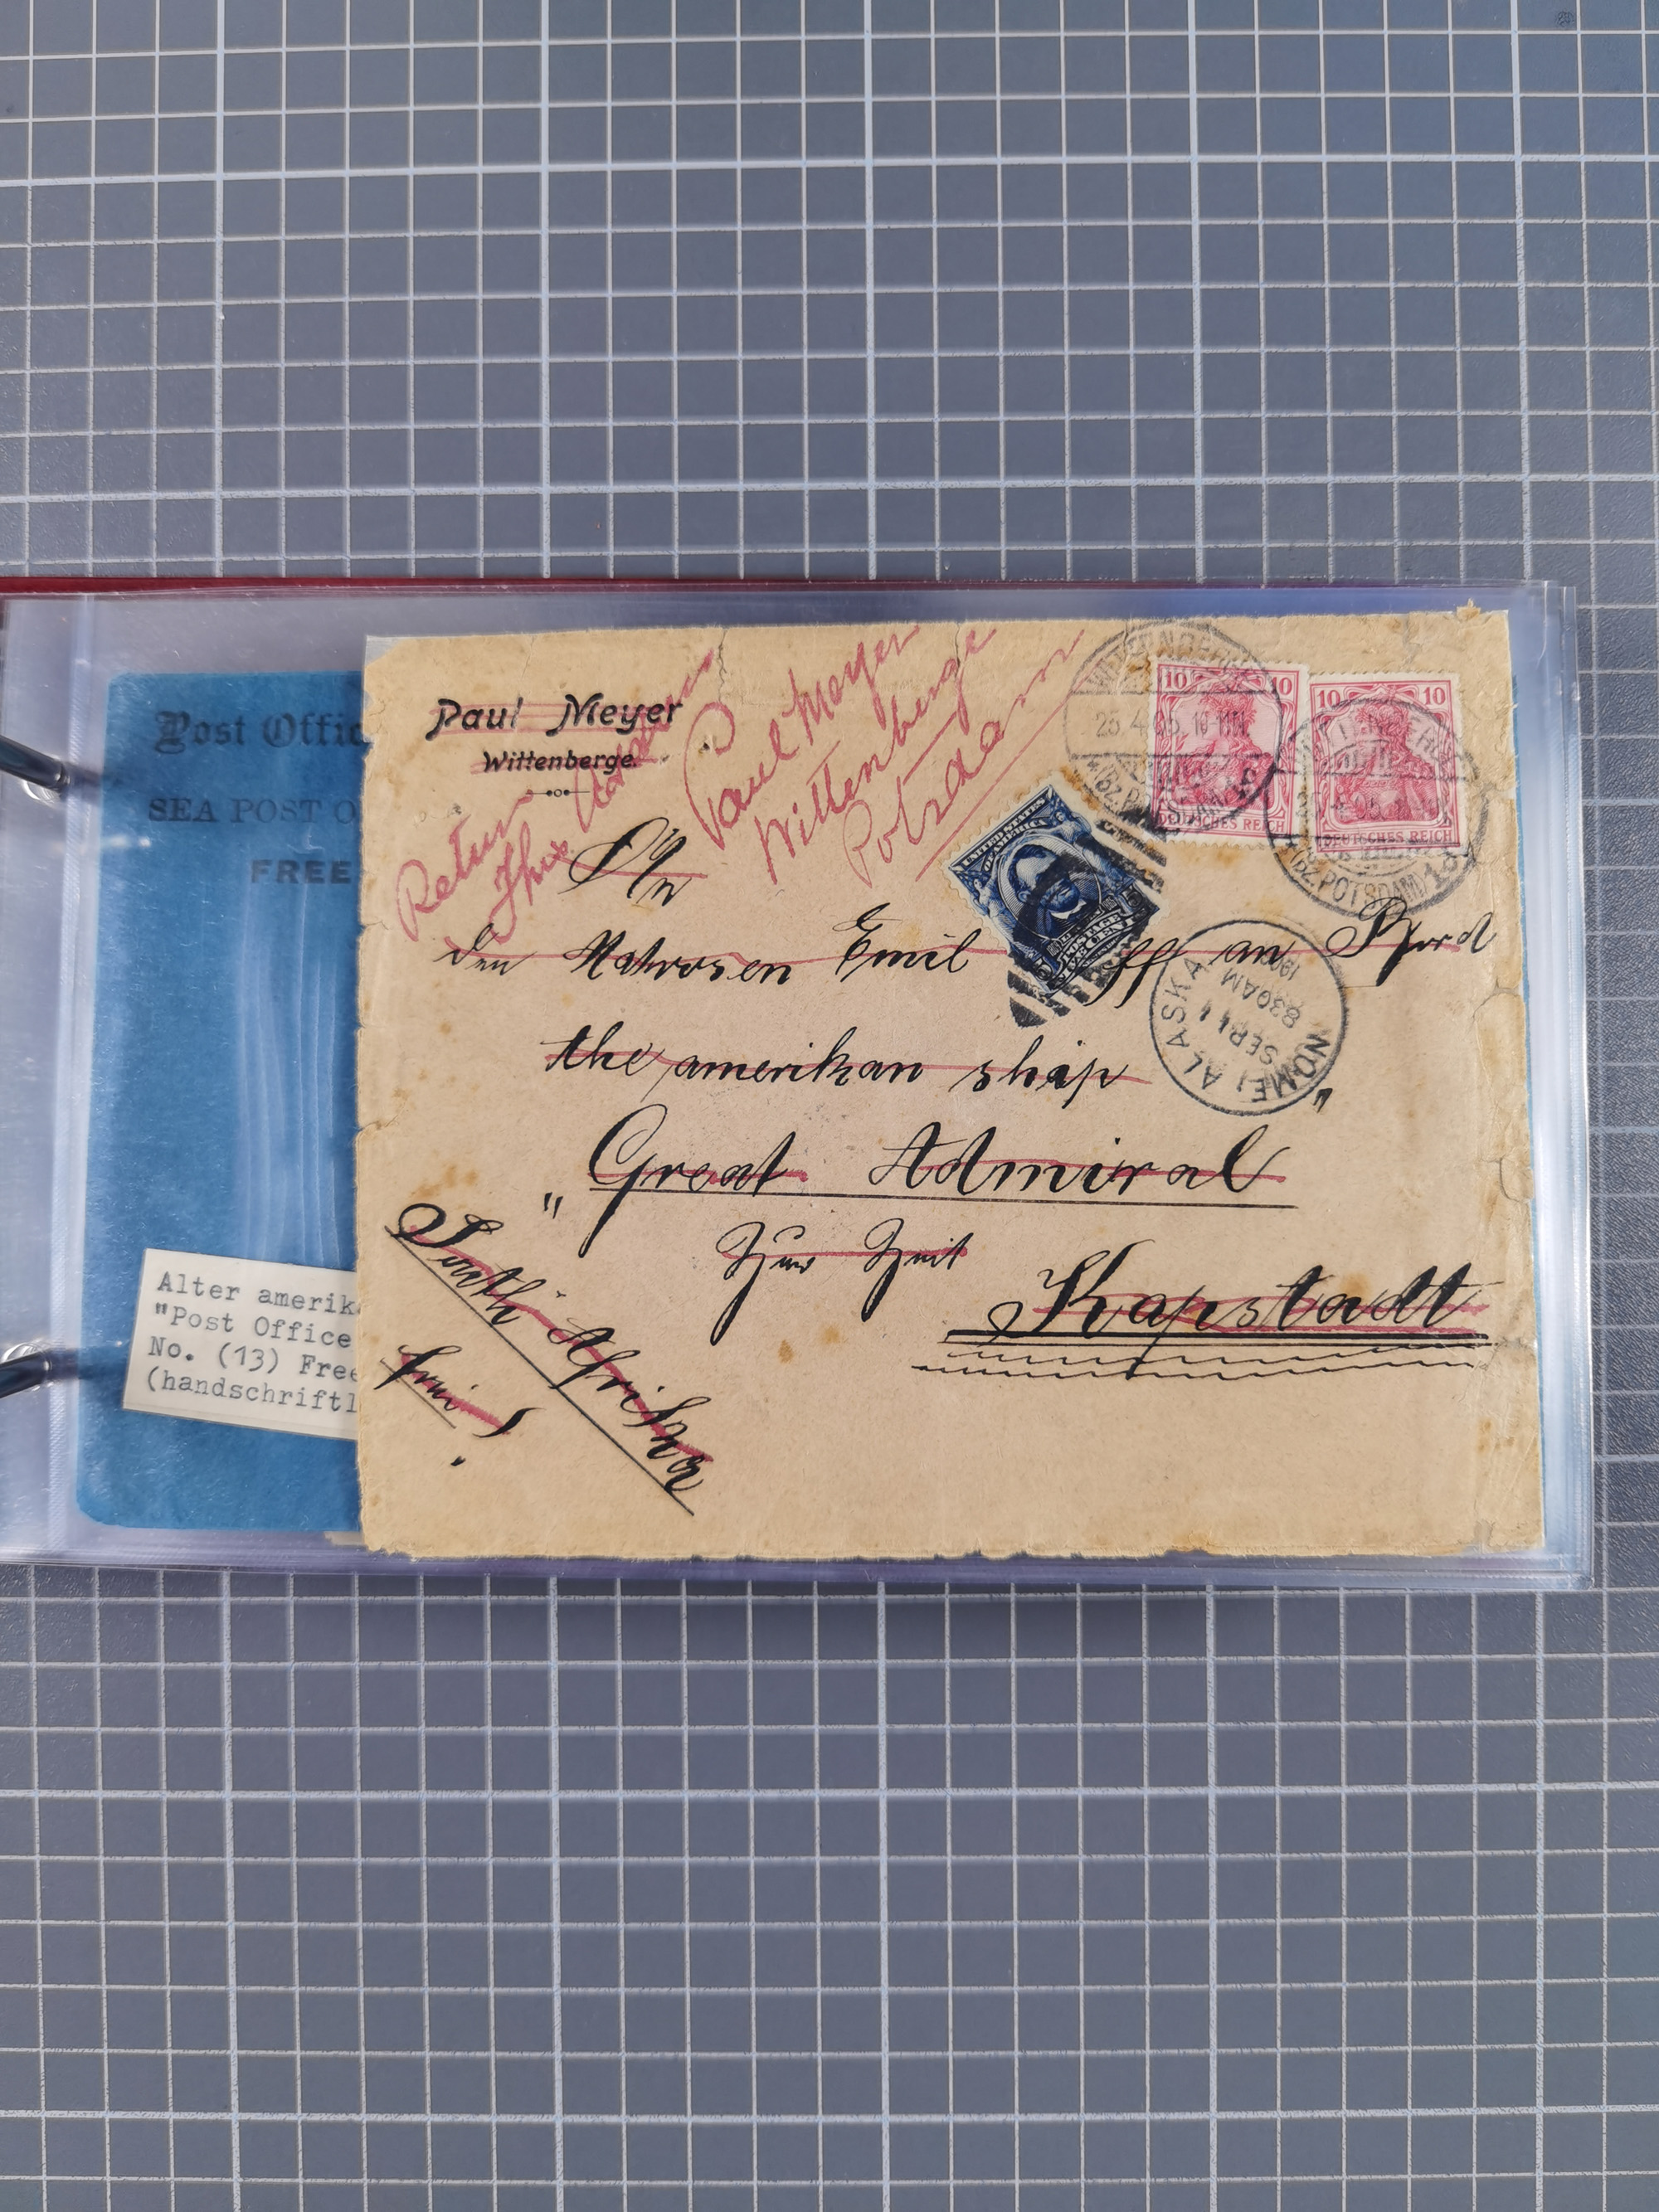 Post Offic
SEA POST O
FREE
Alter amerik
"Post Office
No. (13) Free
(handschriftl
Paul Meyer
Wittenberge.
Return
Paul Meyer
Wittenberge
Potsdam
An
den Matrosen Emil ff an Bord
the amerikan ship
"Great Admiral"
Zur Zeit
Kapstadt
South Afrika
frei!
WITTENBERGE
25.4.05. 10-11N.
(BZ. POTSDAM)
10 10
DEUTSCHES REICH
10 10
DEUTSCHES REICH
(BZ. POTSDAM)
UNITED STATES
OF AMERICA
NOME ALASKA
SEP 11
830AM